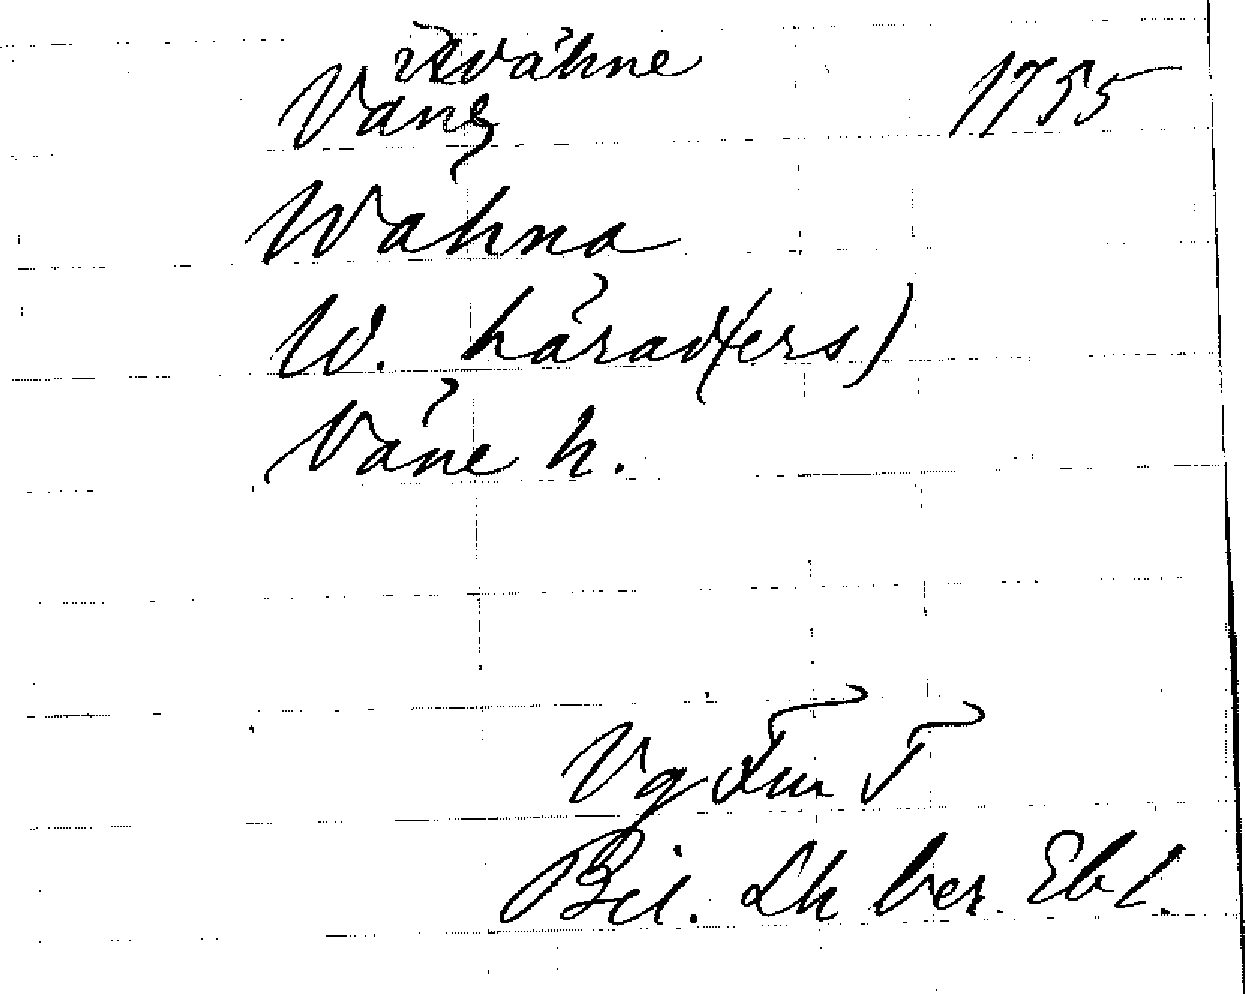 Wåhne
Väne 1755
Wähna
W. härad(ers)
Väne h.
Vg Fm T
Bil. Lh ber. Ebl.